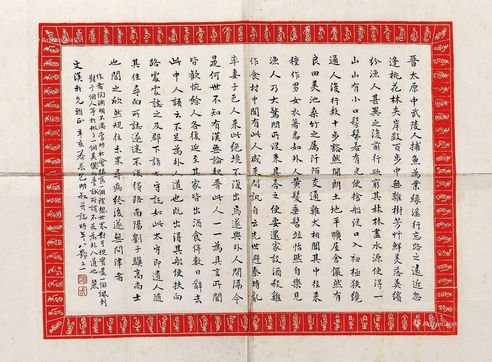 晉太原中武陵人捕魚為業緣溪行忘路之遠近忽
逢桃花林夾岸數百步中無雜樹芳艸鮮美落英繽
紛漁人甚異之復前行欲窮其林林盡水源便得一
山山有小口髣髴若有光便捨船從口入初極狹纔
通人復行數十步豁然開朗土地平曠屋舍儼然有
良田美池桑竹之屬阡陌交通雞犬相聞其中往來
種作男女衣著悉如外人黃髮垂髫並怡然自樂見
漁人乃大驚問所從來具答之便要還家設酒殺雞
作食村中聞有此人咸來問訊自云先世避秦時亂
率妻子邑人來此絕境不復出焉遂與外人間隔今
是何世不知有漢無論魏晉此人一一為具言所聞
皆歎惋餘人各復延至其家皆出酒食停數日辭去
此中人語云不足為外人道也既出得其船便扶向
路處處誌之及郡下詣太守說如此太守即遣人隨
其往尋向所誌遂迷不復得路南陽劉子驥高尚士
也聞之欣然規往未果尋病終後遂無問津者
作者陶淵明不滿
文漢 正 辛亥